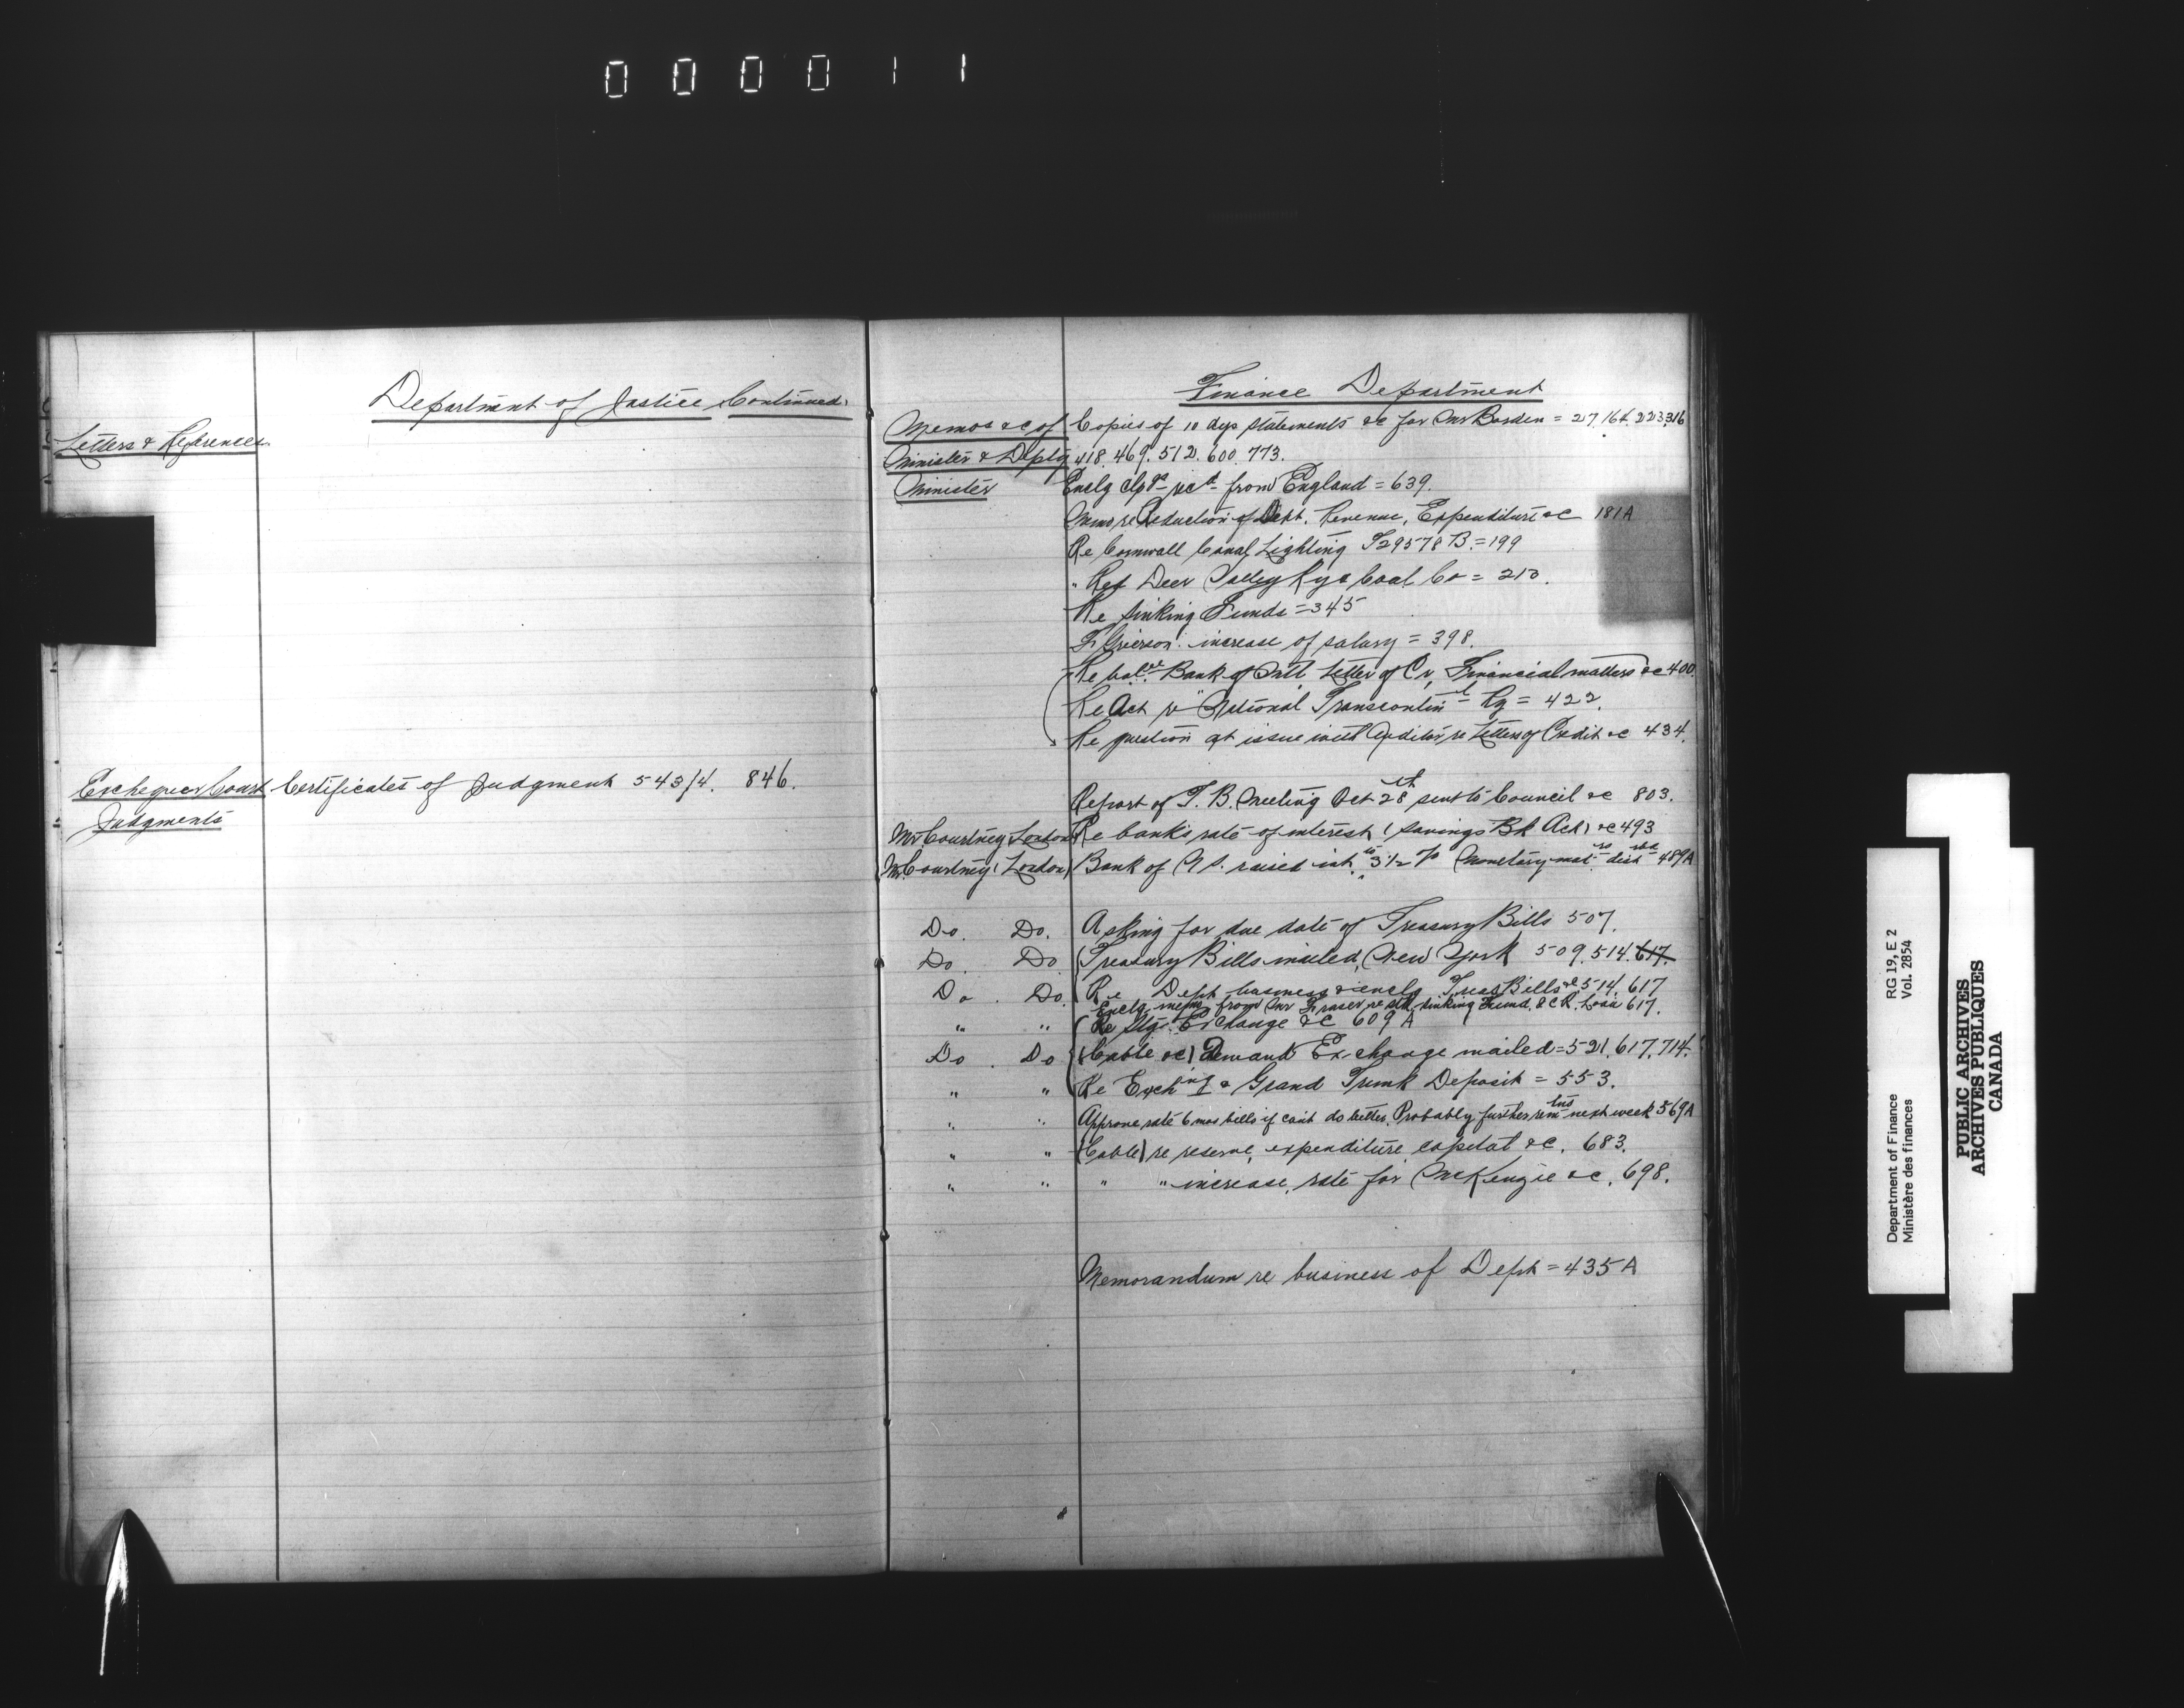 000011
Department of Justice Continued.
Letters & References
Exchequer Court Certificates of Judgment 543/4. 846.
Judgments
Finance Department
Memos &c of Copies of 10 dys statements &c for Mr Borden = 27, 164, 223, 316
Minister & Dpty 418. 469. 512. 600. 773.
Minister Enclg from England = 639.
Memo re Reduction of Debt, Revenue, Expenditure &c 181A
Re Cornwall Canal Lighting 29578 B. = 199
" Red Deer Valley Ry & Coal Co = 213.
Re Sinking Funds = 345
F. Grierson increase of salary = 398.
Re Bank of Mtl Letter of Cr, Financial matters &c 400
Re Act National Transcontin Ry = 422.
Re question at issue with Auditor re Letters of Credit &c 434.
Report of T. B. Meeting Oct 28th sent to Council &c 803.
Mr Courtney London Re banks rate of interest (Savings Bk Act) &c 493
Mr Courtney (London) Bank of raised int. to 3 1/2 % Monetary 489A
Do. Do. Asking for due date of Treasury Bills 507.
Do Do (Treasury Bills mailed, New York 509. 514. 617.
Do. Do. (Re Dept business & enclg Treas Bills &c 514, 617
Enclg memo from Mr Fraser re stk sinking Fund, & C. R. Loan 617.
" " (Re Stg. Exchange &c 609 A
Do. Do (Cable &c) Demand Exchange mailed = 521, 617, 714.
" " Re Exchng & Grand Trunk Deposit = 553.
" " Approve rate 6 mos bills if cant do better. Probably further next week 569A
" " (Cable) re reserve, expenditure capital &c. 683.
" " " " increase, rate for McKenzie &c. 698.
Memorandum re business of Dept = 435A
Department of Finance RG 19, E 2
Ministère des finances Vol. 2854
PUBLIC ARCHIVES
ARCHIVES PUBLIQUES
CANADA